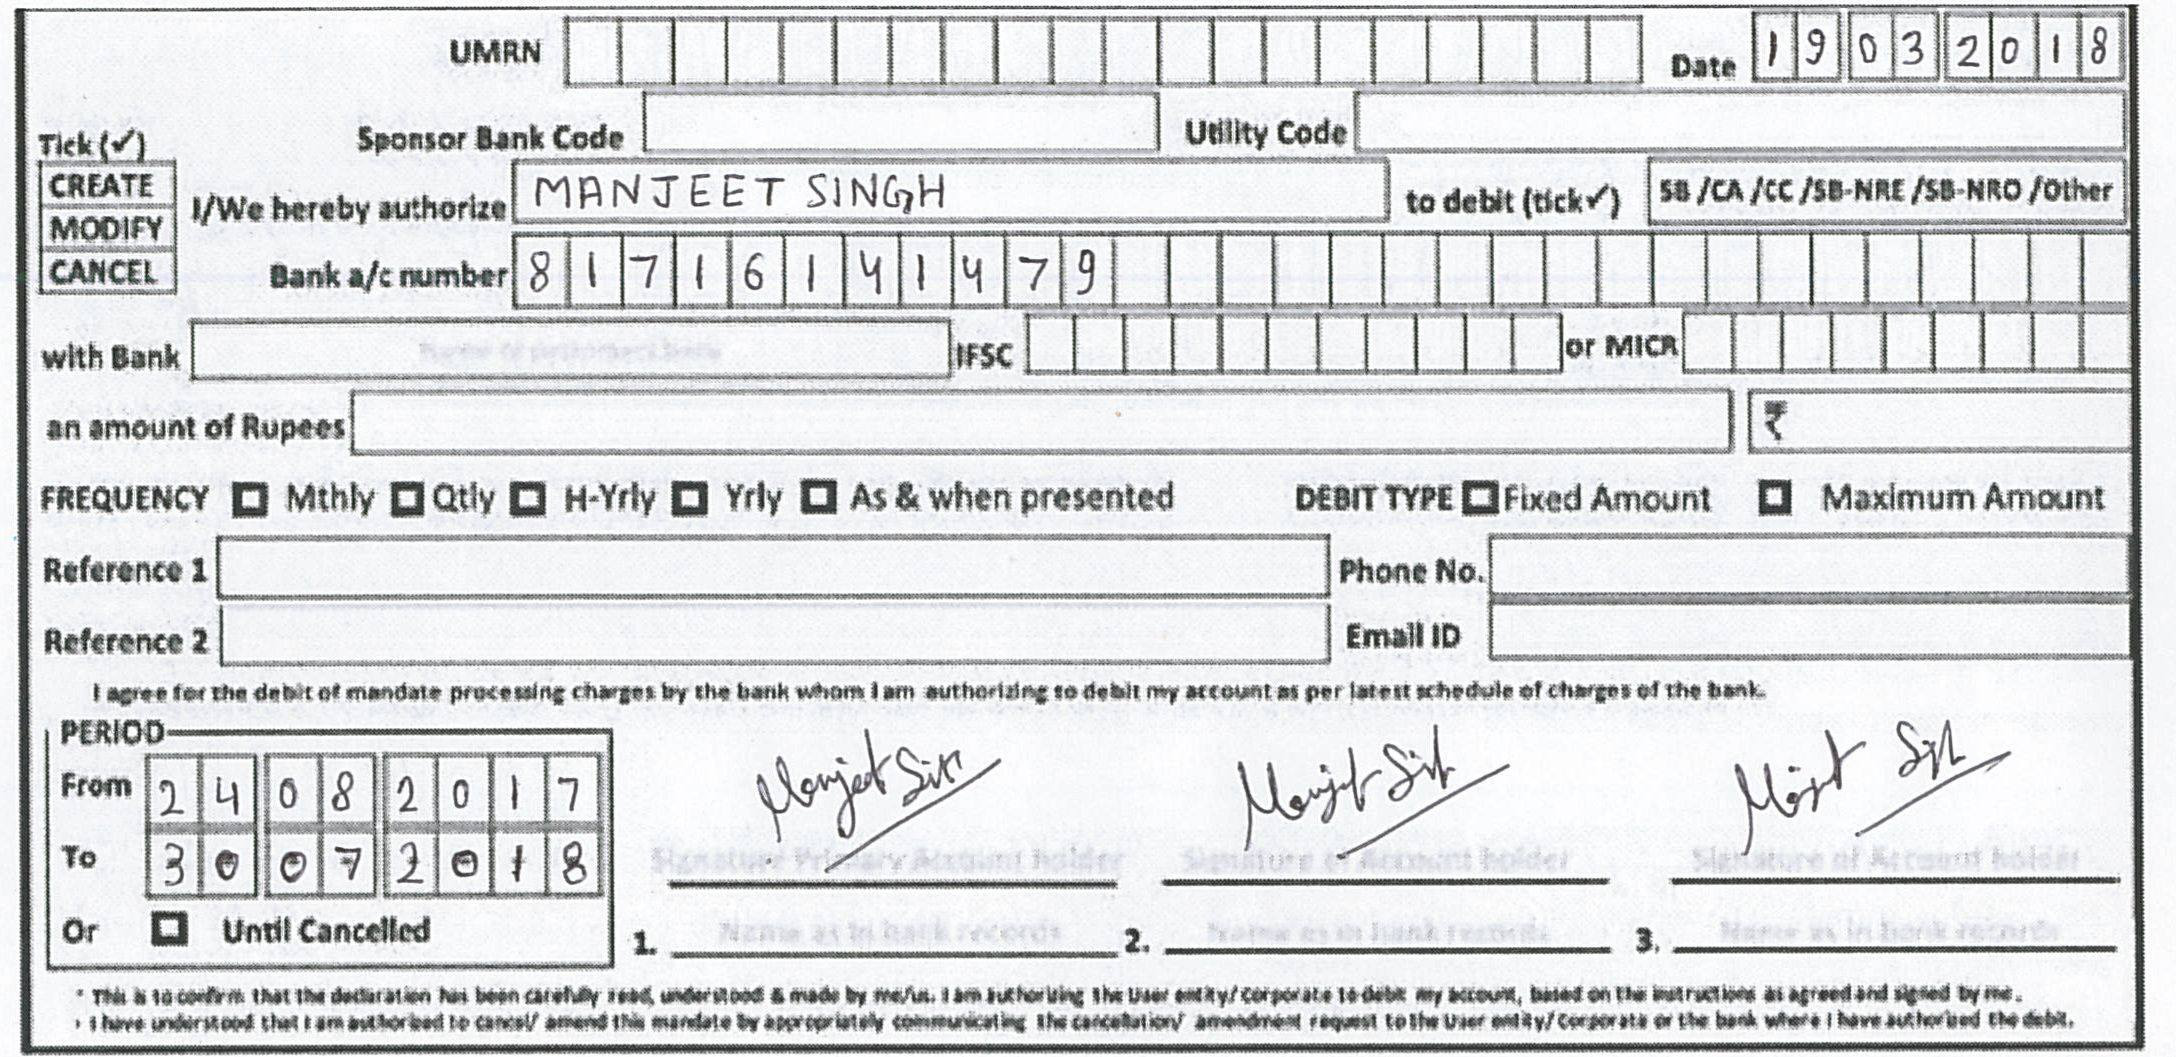 UMRN Date 19032018
Tick (✓) Sponsor Bank Code Utility Code
CREATE
MODIFY
CANCEL
I/We hereby authorize MANJEET SINGH to debit (tick✓) SB /CA /CC /SB-NRE /SB-NRO /Other
Bank a/c number 81716141479
with Bank Name of customers bank IFSC or MICR
an amount of Rupees ₹
FREQUENCY Mthly Qtly H-Yrly Yrly As & when presented DEBIT TYPE Fixed Amount Maximum Amount
Reference 1 Phone No.
Reference 2 Email ID
I agree for the debit of mandate processing charges by the bank whom I am authorizing to debit my account as per latest schedule of charges of the bank.
PERIOD
From 24082017
To 30072018
Or Until Cancelled
Manjeet Singh
Signature Primary Account holder Signature of Account holder Signature of Account holder
1. Name as in bank records 2. Name as in bank records 3. Name as in bank records
* This is to confirm that the declaration has been carefully read, understood & made by me/us. I am authorizing the User entity/ Corporate to debit my account, based on the instructions as agreed and signed by me.
• I have understood that I am authorised to cancel/ amend this mandate by appropriately communicating the cancellation/ amendment request to the User entity/ Corporate or the bank where I have authorized the debit.